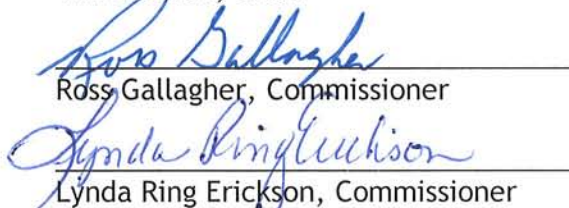 Ross Gallagher
Ross Gallagher, Commissioner
Lynda Ring Erickson
Lynda Ring Erickson, Commissioner